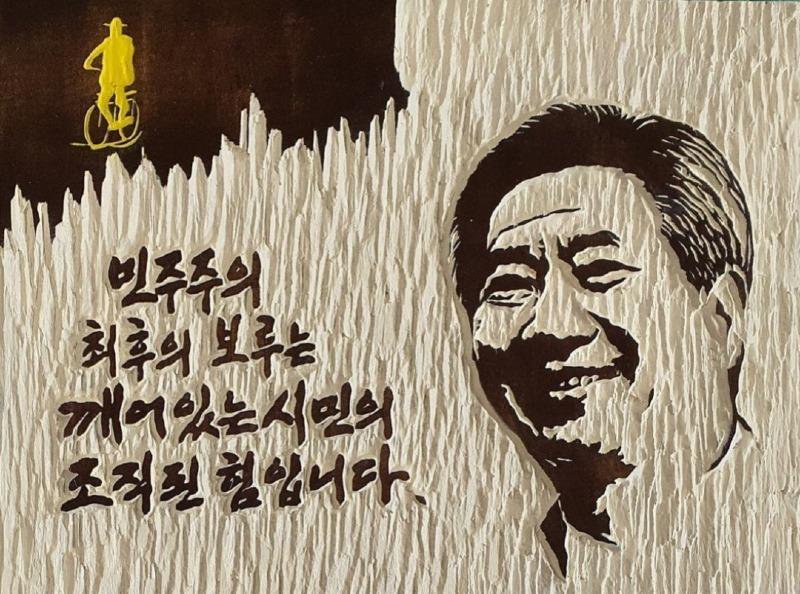 민주주의
최후의 보루는
깨어있는 시민의
조직된 힘입니다.